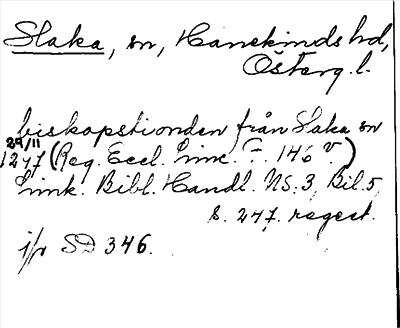 Slaka, sn, Hanekinds hd,
Österg. l.
biskopstionden från Slaka sn
29/11
1247 (Reg. Eccl. Linc. F. 146 v.)
Link. Bibl. Handl. NS. 3, Bil. 5,
s. 247, regest.
jfr SD 346.